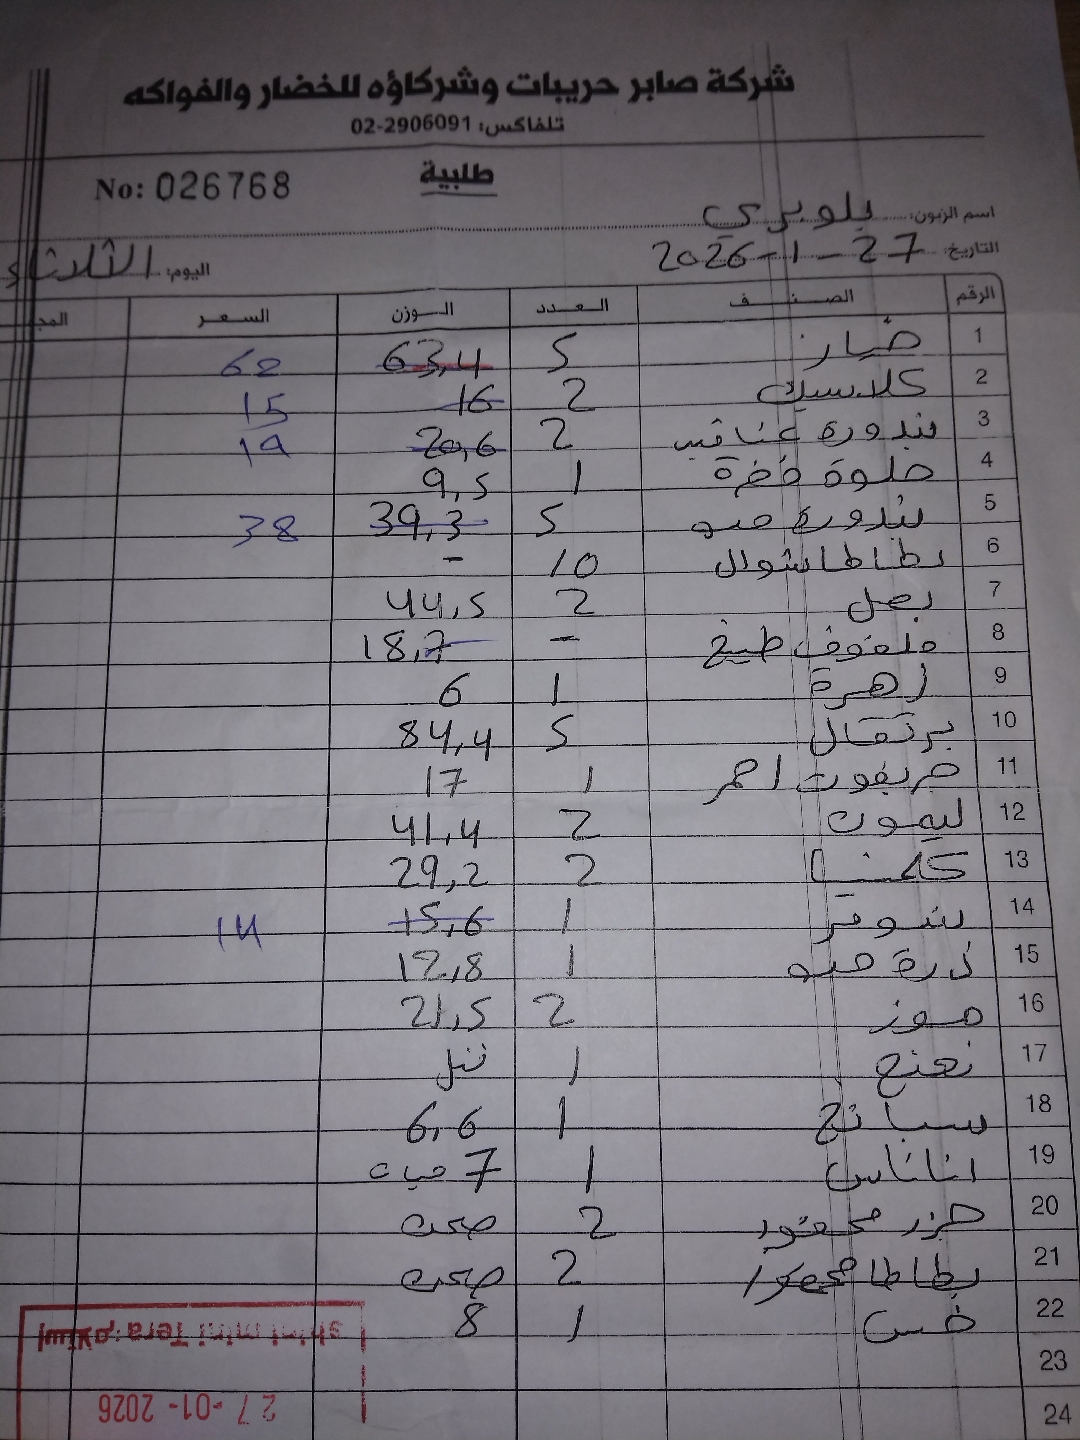 شركة صابر حريبات وشركاؤه للخضار والفواكه
تلفاكس: 02-2906091
طلبية
No: 026768
اسم الزبون: بلوبري
التاريخ: 27-1-2026
اليوم: الثلاثاء
الرقم الصنف العدد الوزن السعر المجـ
1 خيار 5 63,4 62
2 كلاسيك 2 16 15
3 بندورة عناقيد 2 20,6 19
4 حلوة خضرة 1 9,5
5 بندورة حب 5 39,3 38
6 بطاطا شوال 10 -
7 بصل 2 44,5
8 ملفوف طبيخ - 18,7
9 زهرة 1 6
10 برتقال 5 84,4
11 جريفوت احمر 1 17
12 ليمون 2 41,4
13 كلمنتينا 2 29,2
14 شومر 1 15,6 14
15 ذرة حب 1 12,8
16 موز 2 21,5
17 نعنع 1
18 سبانخ 1 6,6
19 اناناس 1 7 حبات
20 جزر 2 صحن
21 بطاطا 2 صحن
22 خس 1 8
23
24
إستلام: mini Tera
27-01-2026